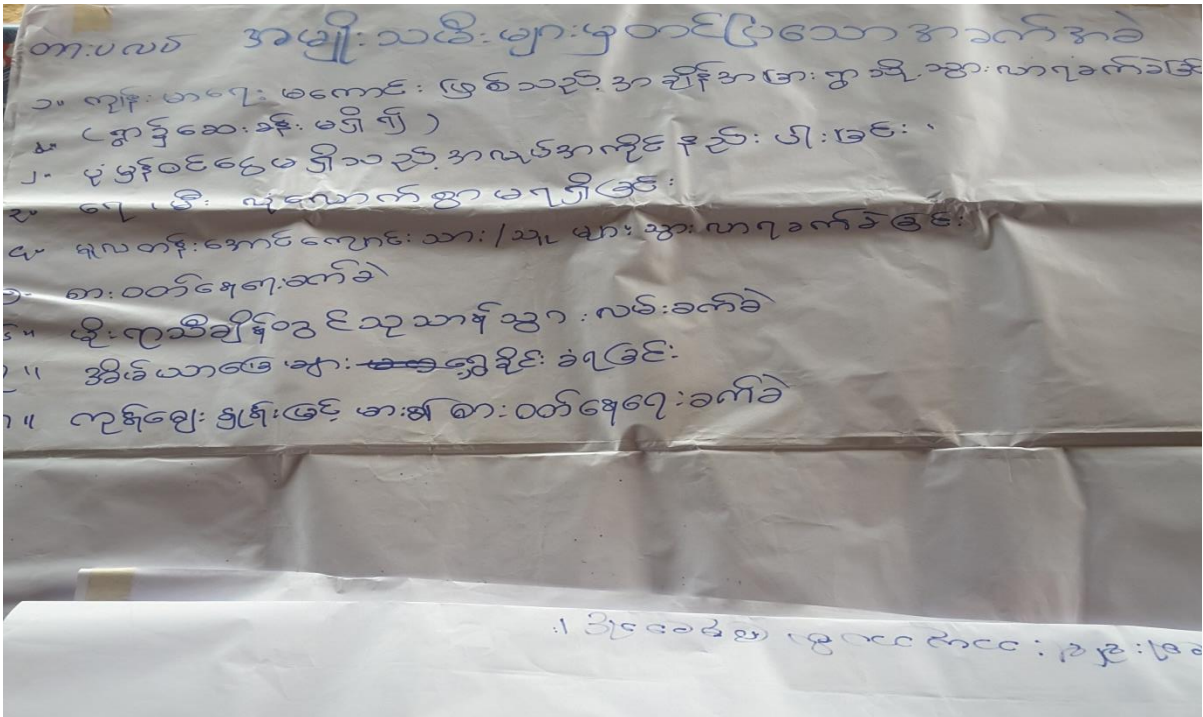 တားပလပ် အမျိုးသမီးများမှတင်ပြသောအခက်အခဲ
၁။ ကျန်းမာရေးမကောင်းဖြစ်သည့်အချိန်အခြားရွာသို့သွားလာရခက်ခဲခြင်း
(ရွာ၌ဆေးခန်းမရှိ၍)
၂။ ပုံမှန်ဝင်ငွေမရှိသည့်အလုပ်အကိုင်နည်းပါးခြင်း
၃။ ရေ၊ မီး လုံလောက်စွာမရရှိခြင်း
၄။ မူလတန်းအောင်ကျောင်းသား/သူများသွားလာရခက်ခဲခြင်း
စားဝတ်နေရေးခက်ခဲ
မိုးရာသီချိန်တွင်သုသာန်သွားလမ်းခက်ခဲ
အိမ်ယာမြေများ ရွှေ့ခိုင်းခံရခြင်း
ကုန်ဈေးနှုန်းမြင့်မား၍စားဝတ်နေရေးခက်ခဲ